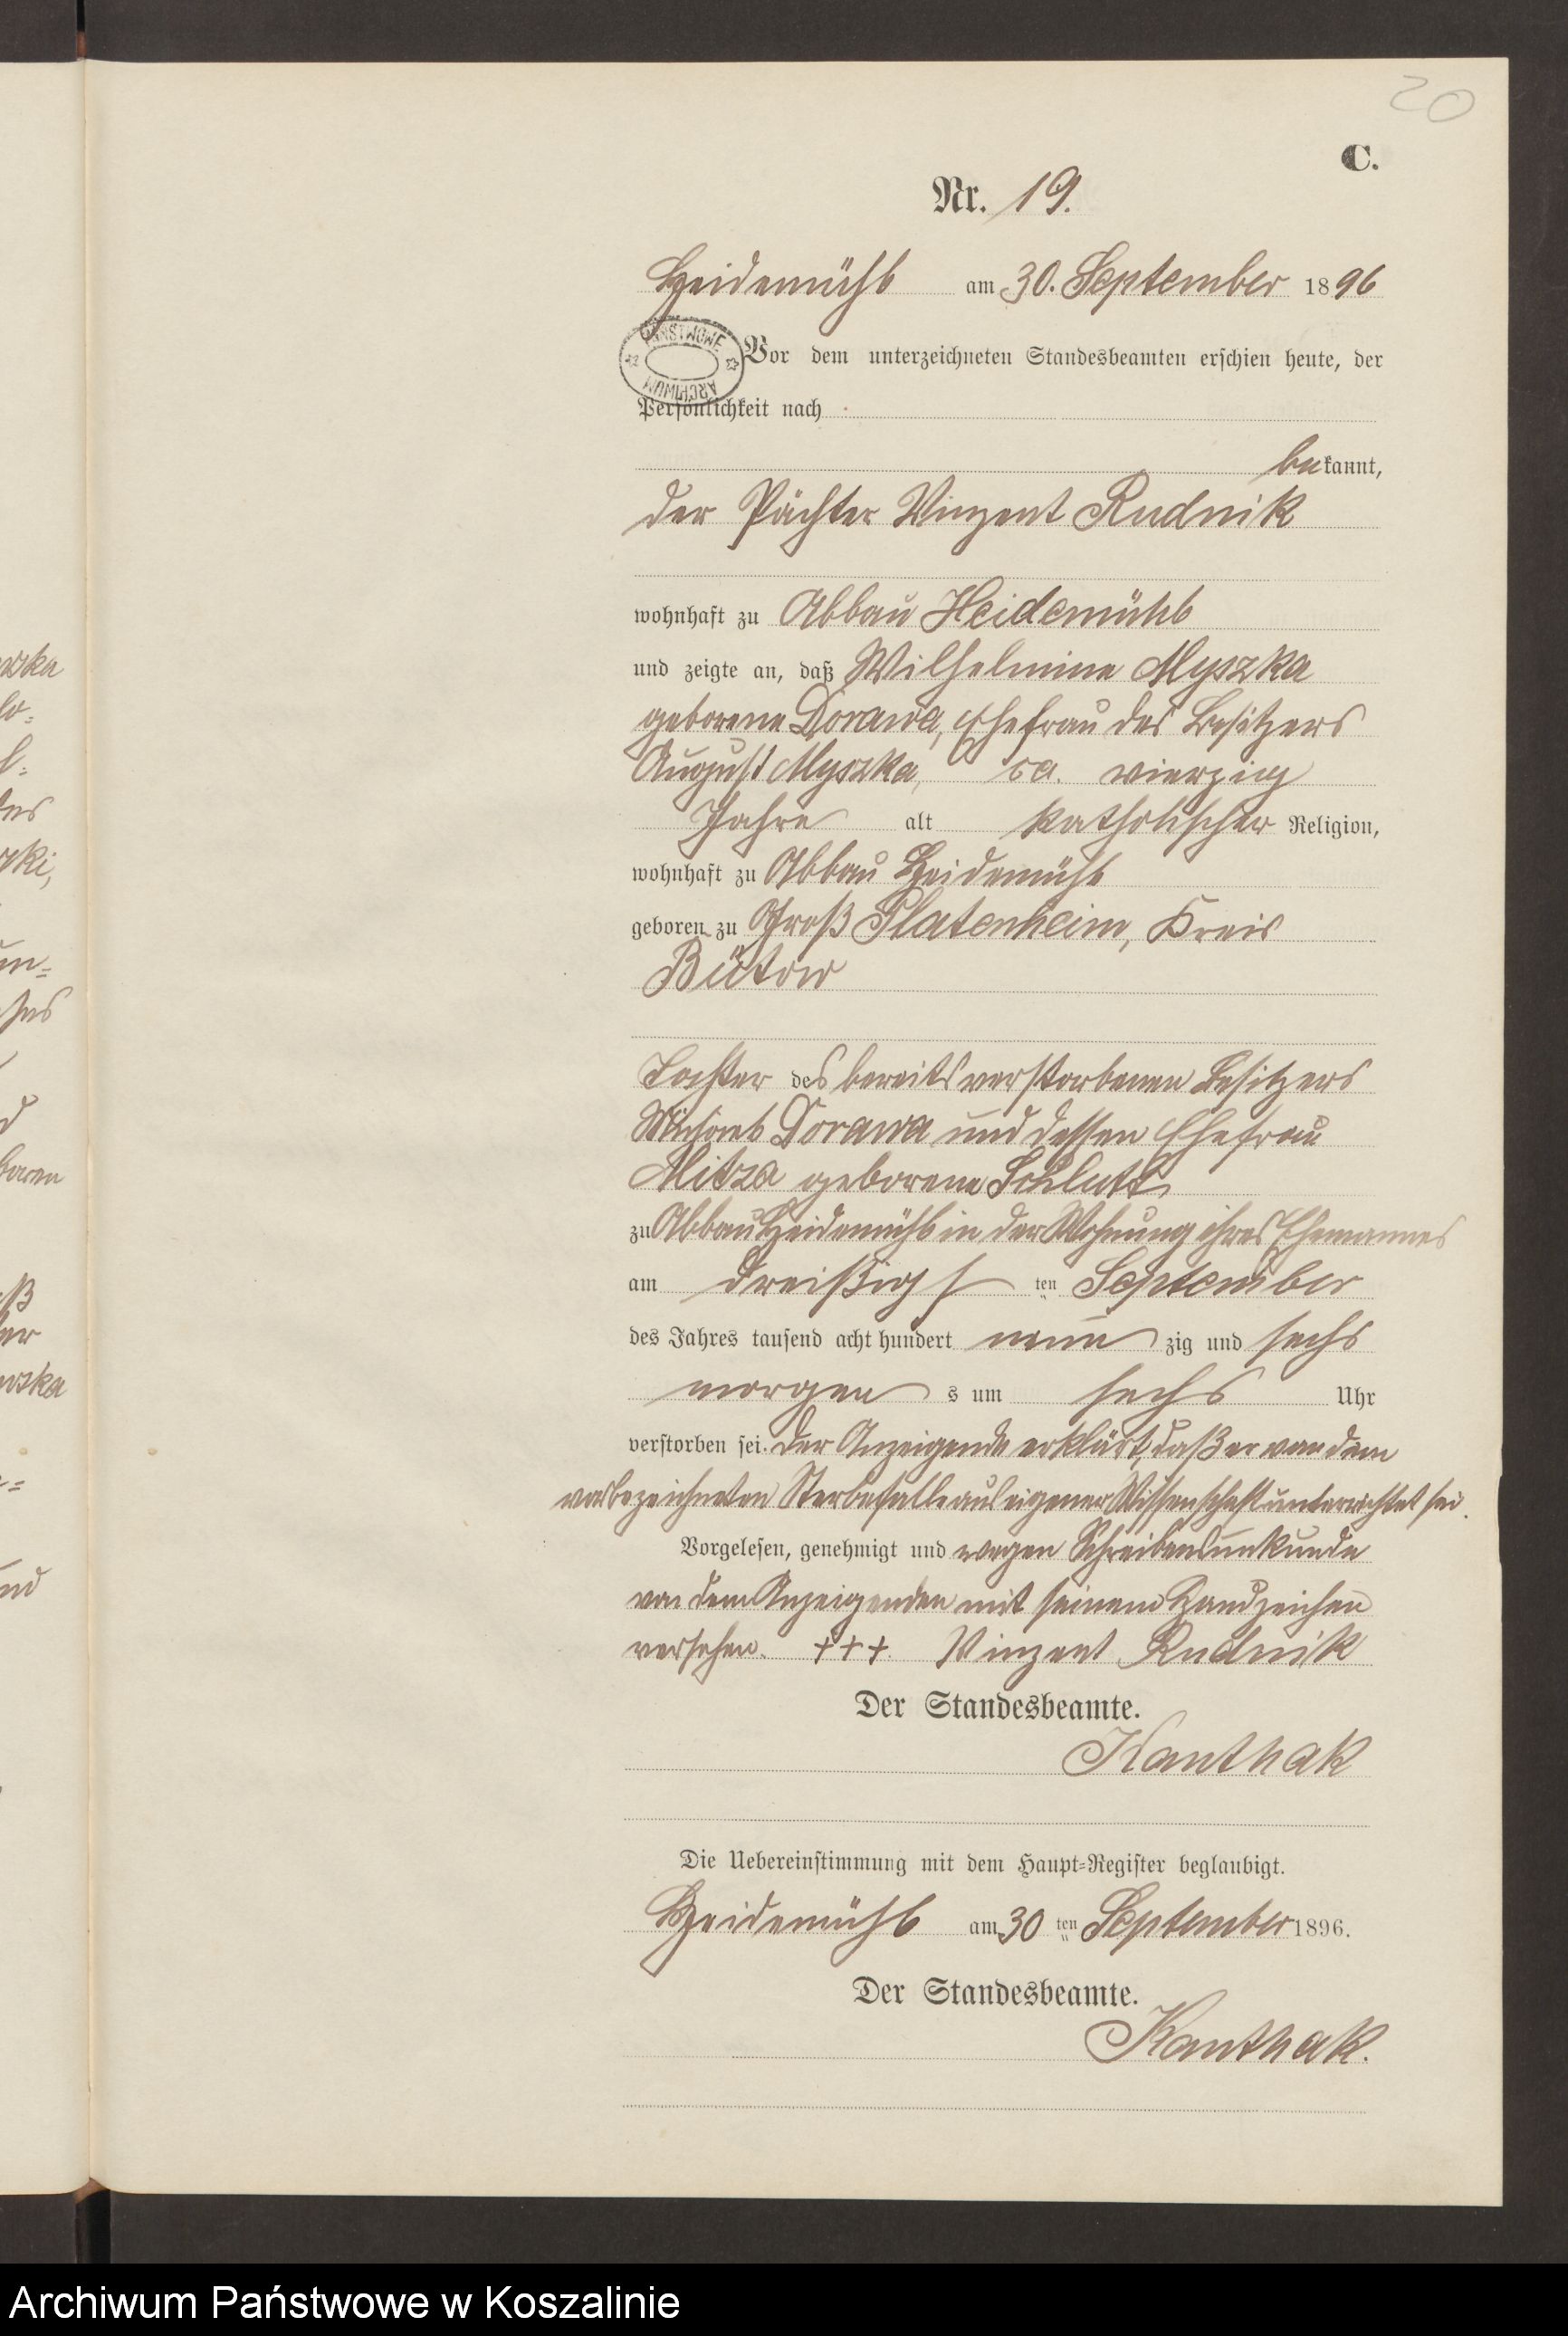 20
C.
Nr. 19.
Heidemühl am 30. September 1896
PAŃSTWOWE ARCHIWUM
Vor dem unterzeichneten Standesbeamten erschien heute, der
Persönlichkeit nach
bekannt,
der Pächter Vinzent Rudnik
wohnhaft zu Abbau Heidemühl
und zeigte an, daß Wilhelmine Myszka
geborene Dorawa, Ehefrau des Besitzers
August Myszka, ca. vierzig
Jahre alt katholischer Religion,
wohnhaft zu Abbau Heidemühl
geboren zu Groß Platenheim, Kreis
Bütow
Tochter des bereits verstorbenen Besitzers
Dorawa und dessen Ehefrau
geborene
zu Abbau Heidemühl in der Wohnung ihres Ehemannes
am dreißigsten September
des Jahres tausend acht hundert neunzig und sechs
morgens um sechs Uhr
verstorben sei. Der Anzeigende erklärt, daß er von dem
vorbezeichneten Sterbefalle aus eigener Wissenschaft unterrichtet sei.
Vorgelesen, genehmigt und wegen Schreibensunkunde
von dem Anzeigenden mit seinem Handzeichen
versehen. +++. Vinzent Rudnik
Der Standesbeamte.
Kanthak
Die Uebereinstimmung mit dem Haupt=Register beglaubigt.
Heidemühl am 30ten September 1896.
Der Standesbeamte.
Kanthak.
Archiwum Państwowe w Koszalinie